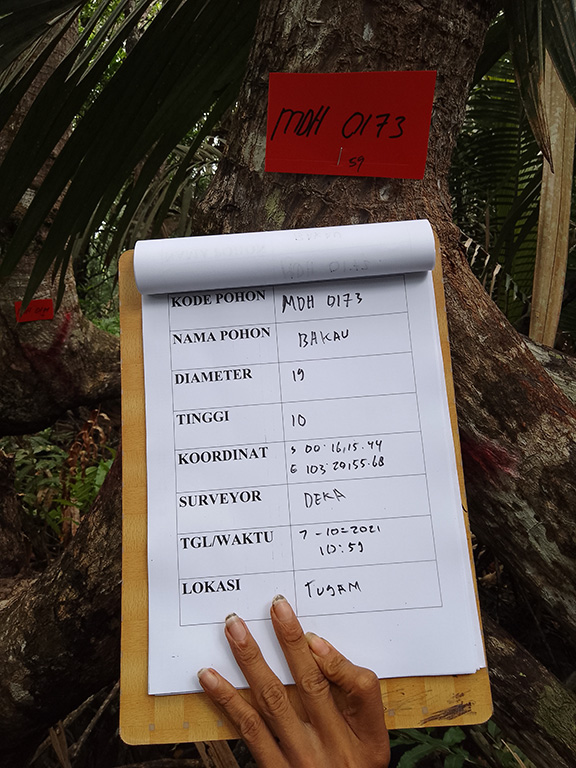 MDH 0173
59
KODE POHON MDH 0173
NAMA POHON BAKAU
DIAMETER 19
TINGGI 10
KOORDINAT S 00:16,15.44
E 103:29,55.68
SURVEYOR DEKA
TGL/WAKTU 7-10-2021
10:59
LOKASI TUGAM